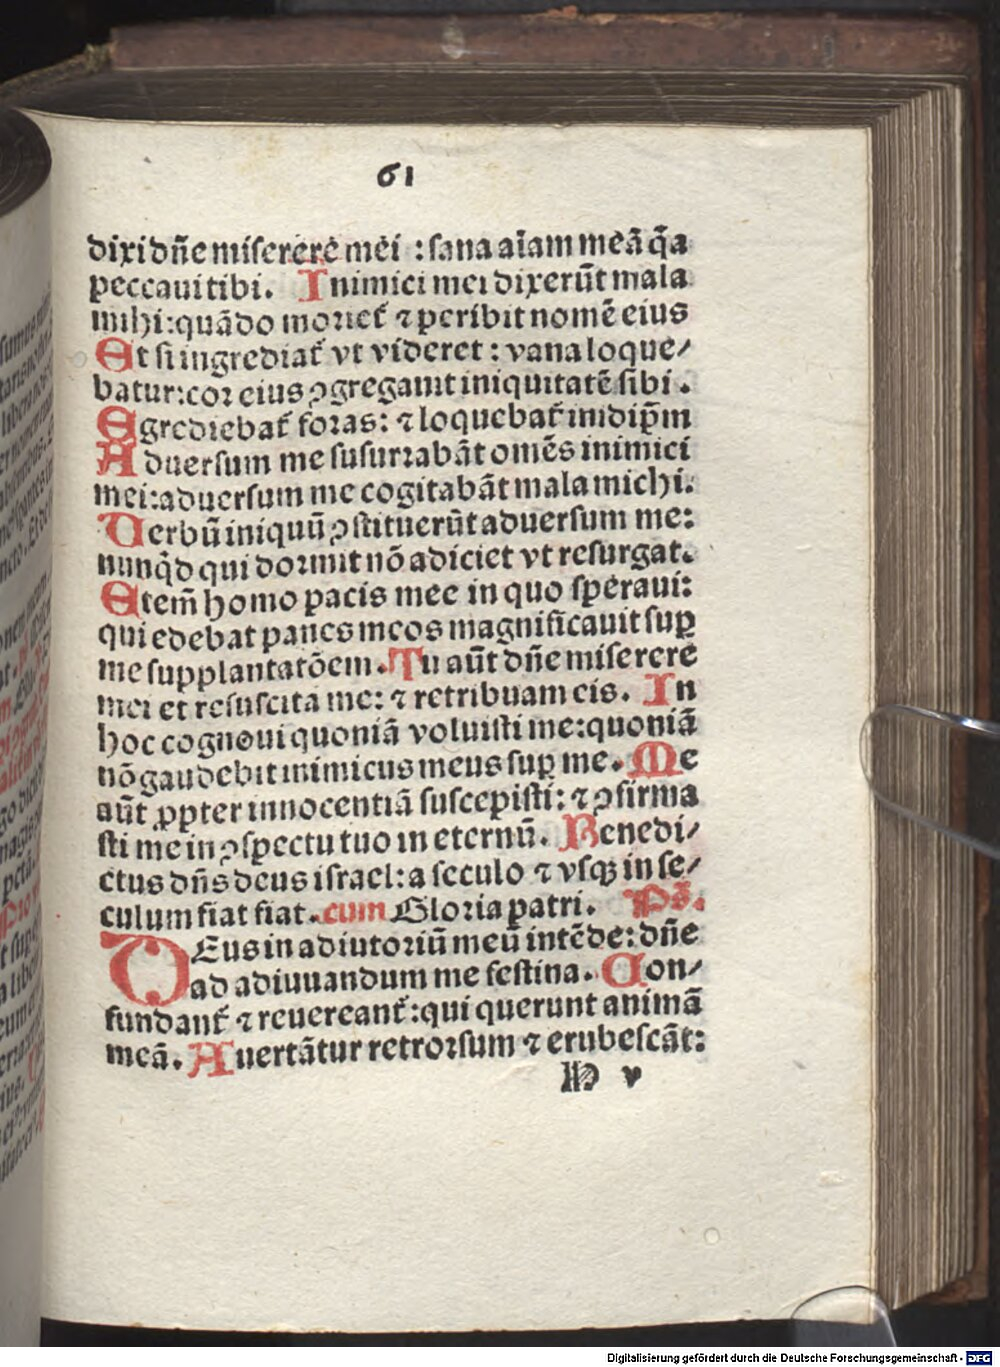 61
dixi dñe miserere mei : sana aiam meã q̃a
peccaui tibi. Inimici mei dixerũt mala
mihi: quãdo moriet᷑ ⁊ peribit nomẽ eius
Et si ingrediat᷑ vt videret : vana loque/
batur: cor eius ꝯgregauit iniquitatẽ sibi .
Egrediebat᷑ foras: ⁊ loquebat᷑ in idip̃m
Aduersum me susurrabãt omẽs inimici
mei: aduersum me cogitabãt mala michi.
Uerbũ iniquũ ꝯstituerũt aduersum me:
nunq̃d qui dormit nõ adiciet vt resurgat.
Etem̃ homo pacis mee in quo speraui:
qui edebat panes meos magnificauit suꝑ
me supplantatõem. Tu aũt dñe miserere
mei et resuscita me: ⁊ retribuam eis. In
hoc cognoui quoniã voluisti me: quoniã
nõ gaudebit inimicus meus suꝑ me. Me
aũt ꝓpter innocentiã suscepisti: ⁊ ꝯfirma
sti me in ꝯspectu tuo in eternũ. Benedi/
ctus dñs deus israel: a seculo ⁊ vsqꝫ in se/
culum fiat fiat. cum Gloria patri. Ps̃.
DEus in adiutoriũ meũ intẽde: dñe
ad adiuuandum me festina. Con/
fundant᷑ ⁊ reuereant᷑ : qui querunt animã
meã. Auertãtur retrorsum ⁊ erubescãt:
H v
Digitalisierung gefördert durch die Deutsche Forschungsgemeinschaft - DFG